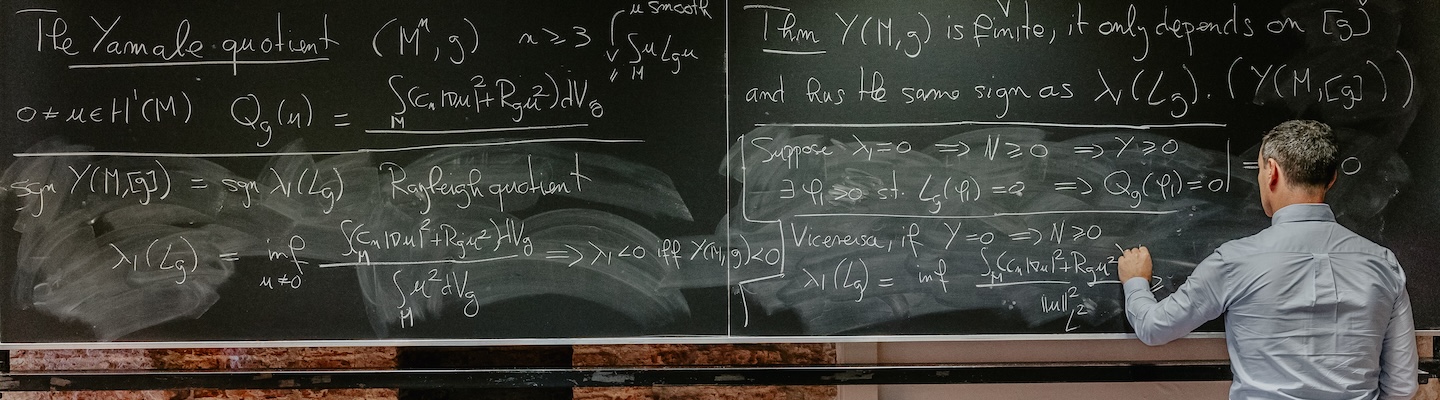 The Yamabe quotient (Mⁿ, g) n ≥ 3
u smooth
∫_M u L_g u
0 ≠ u ∈ H¹(M) Q_g(u) = ∫_M (c_n |∇u|² + R_g u²) dV_g
sgn Y(M,[g]) = sgn λ₁(L_g) Rayleigh quotient
λ₁(L_g) = inf_{u≠0} ∫_M (c_n |∇u|² + R_g u²) dV_g / ∫_M u² dV_g ⇒ λ₁ < 0 iff Y(M,g) < 0
Thm Y(M,g) is finite, it only depends on [g]
and has the same sign as λ₁(L_g). (Y(M,[g]))
Suppose λ₁ = 0 ⇒ N ≥ 0 ⇒ Y ≥ 0
∃ φ₁ > 0 st. L_g(φ₁) = 0 ⇒ Q_g(φ₁) = 0 | = 0
Viceversa, if Y = 0 ⇒ N ≥ 0
λ₁(L_g) = inf ∫_M (c_n |∇u|² + R_g u² / ||u||²_{L²} ≥